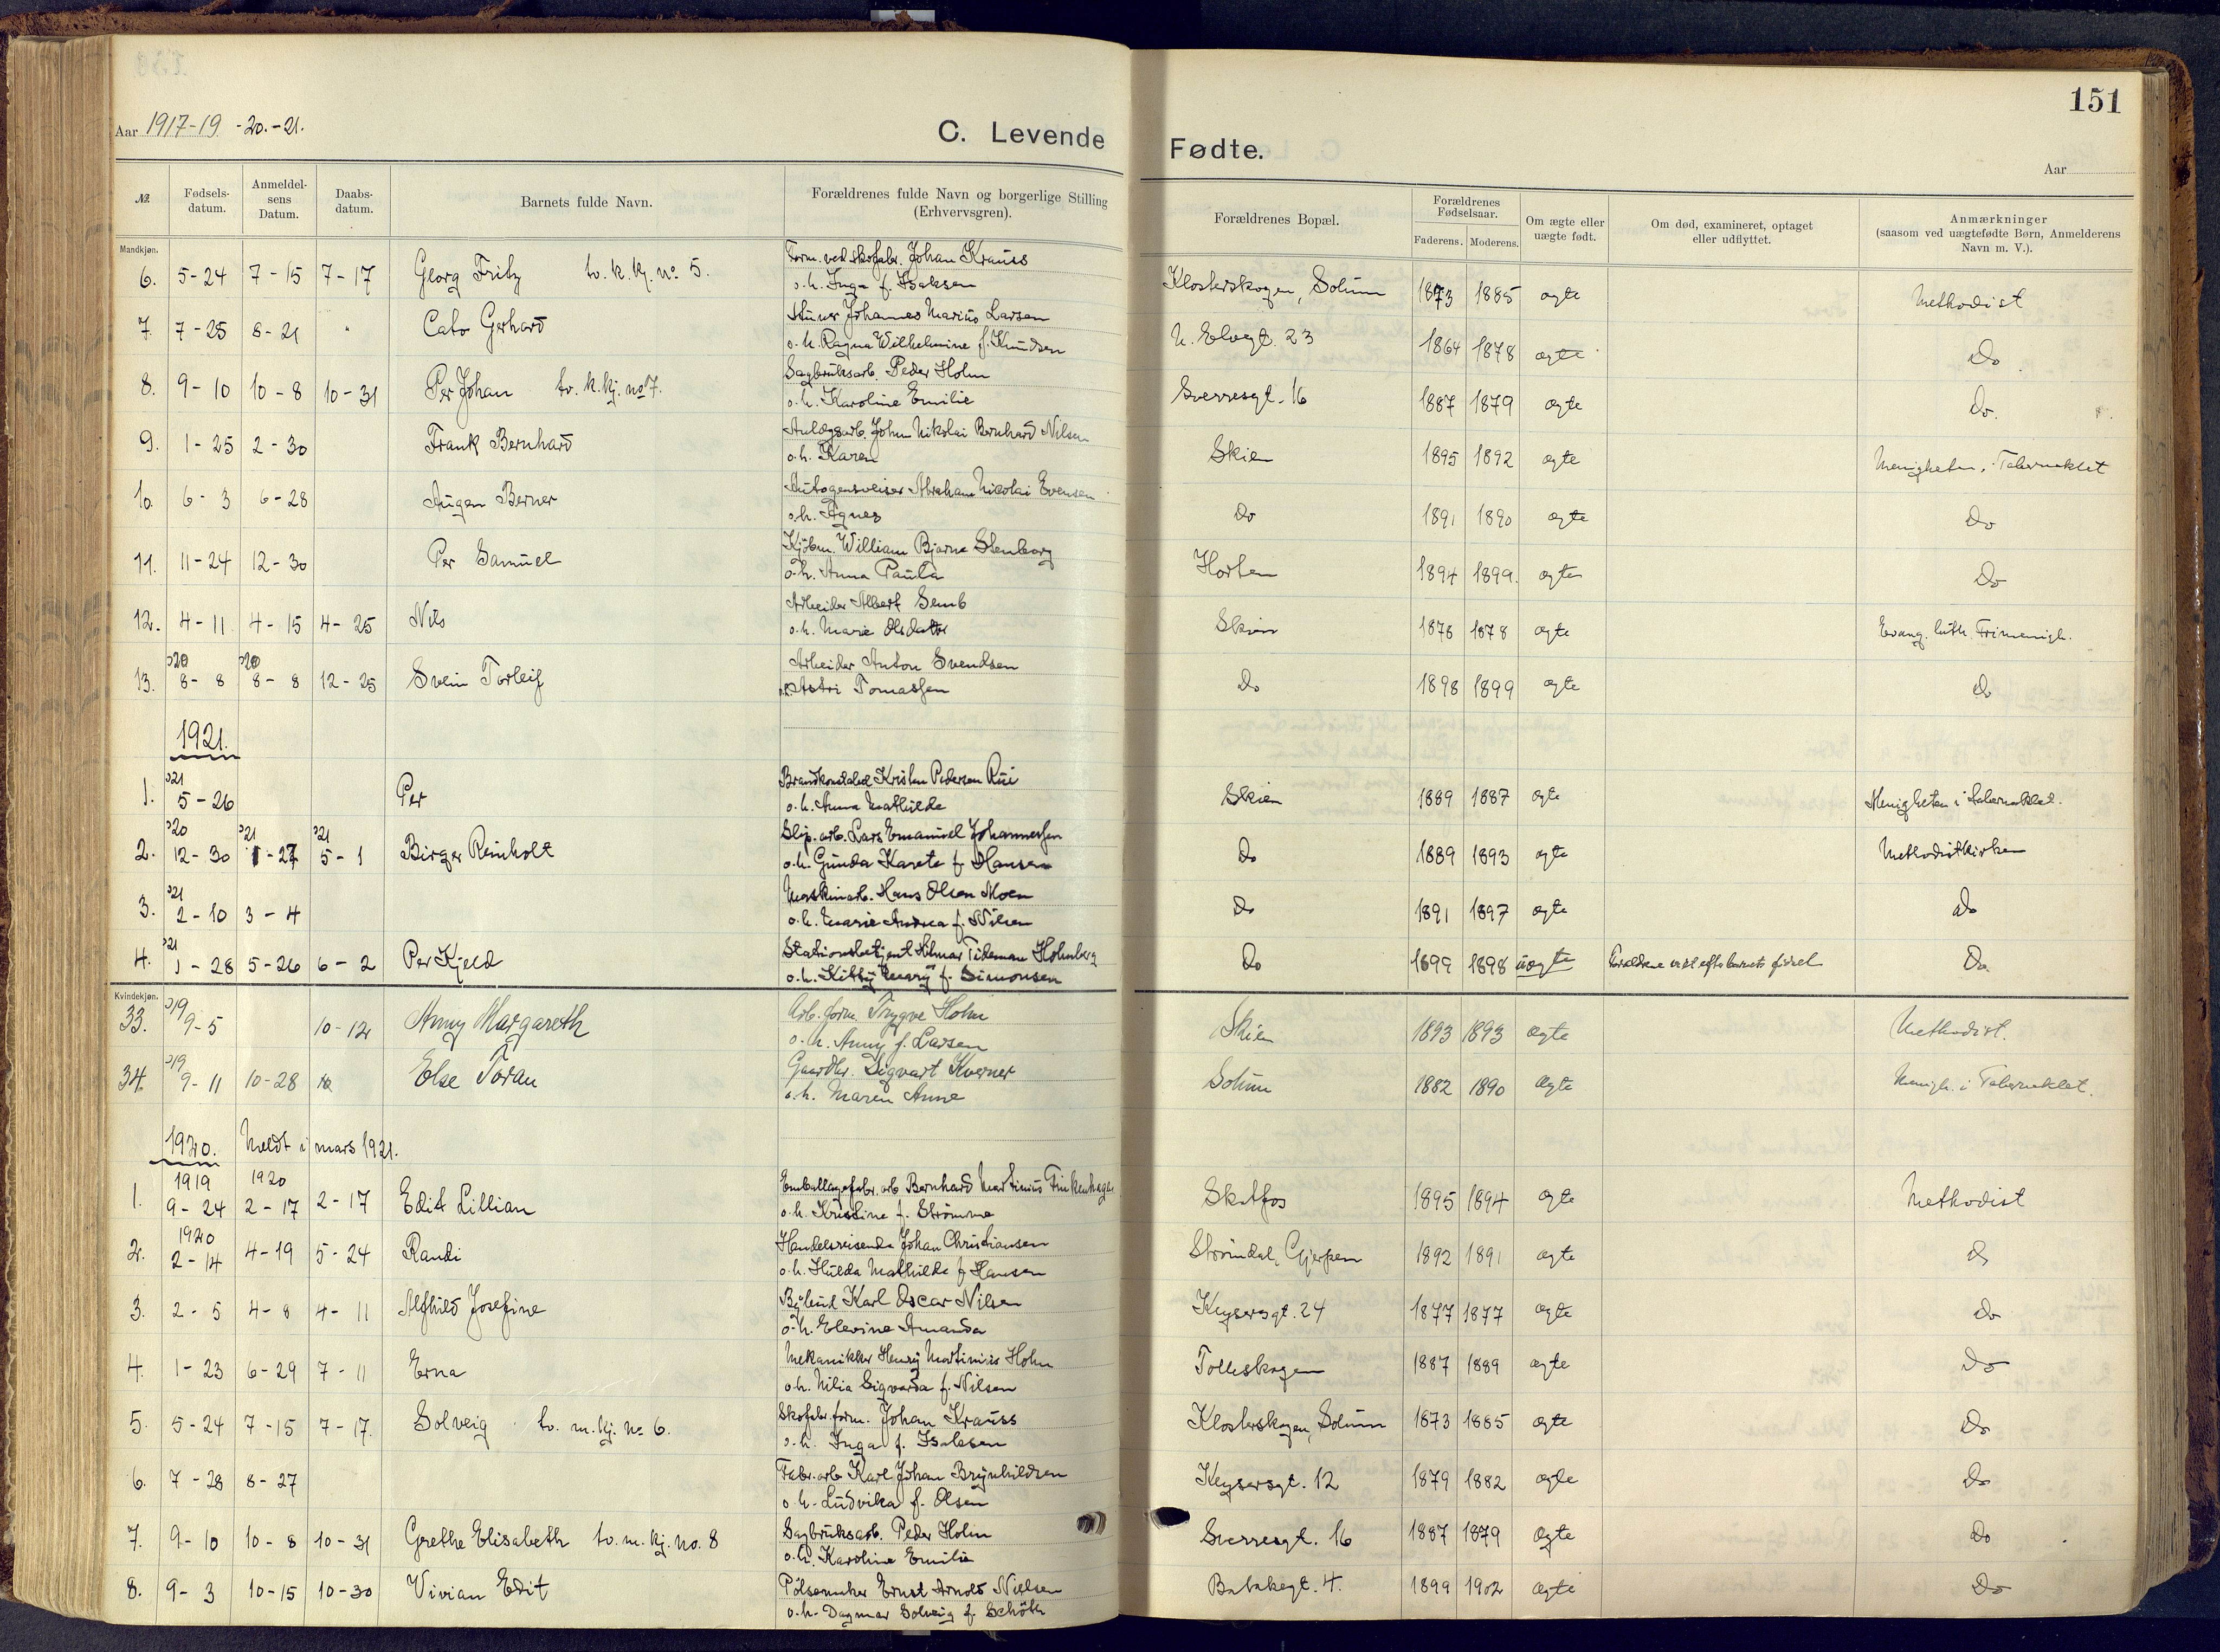 151
Aar 1917-19-20.-21.
C. Levende Fødte.
Aar
№ Fødsels-datum. Anmeldel-sens Datum. Daabs-datum. Barnets fulde Navn. Forældrenes fulde Navn og borgerlige Stilling (Erhvervsgren). Forældrenes Bopæl. Forældrenes Fødselsaar. Faderens. Moderens. Om ægte eller uægte født. Om død, examineret, optaget eller udflyttet. Anmærkninger (saasom ved uægtefødte Børn, Anmelderens Navn m. V.).
Mandkjøn.
6. 5-24 7-15 7-17 Georg Fritz tv. k. kj. no. 5. Form. ved skofabr. Johan Krauss Klosterskogen, Solum 1873 1885 ægte Methodist
o. h. Inga f. Isaksen
7. 7-25 8-21 " Cato Gerhard Johannes Marius Larsen N. Elvegt. 23 1864 1878 ægte Do
o. h. Ragna Wilhelmine f. Knudsen
8. 9-10 10-8 10-31 Per Johan tv. k. kj. no 7. Sagbruksarb. Peder Holm Sverresgt. 16 1887 1879 ægte Do.
o. h. Karoline Emilie
9. 1-25 2-30 Frank Bernhard Anlægsarb. John Nikolai Bernhard Nilsen Skien 1895 1892 ægte Menigheten, Tabernaklet
o. h. Karen
10. 6-3 6-28 Augen Berner Autogensveiser Abraham Nicolai Evensen Do 1891 1890 ægte Do
o. h. Agnes
11. 11-24 12-30 Per Samuel Kjøbm. William Bjarne Stenborg Horten 1894 1899. ægte Do
o. h. Anna Paula
12. 4-11 4-15 4-25 Nils Arbeider Albert Semb Skien 1878 1878 ægte Evang. luth. Frimenigh.
o. h. Marie Olsdatter
13. 20 8-8 20 8-8 12-25 Svein Torleif Arbeider Anton Svendsen Do 1898 1899 ægte Do
o. h. Astri Tomassen
1921.
1. 21 5-26 Per Brandkonstabel Kristen Pedersen Rui Skien 1889 1887 ægte Menigheten i Tabernaklet.
o. h. Anna Mathilde
2. 20 12-30 21 1-27 21 5-1 Birger Reinholt Slip. arb. Lars Emanuel Johannessen Do 1889 1893 ægte Methodistkirken
o. h. Gunda Karete f. Hansen
3. 21 2-10 3-4 Maskinarb. Hans Olsen Moen Do 1891 1897 ægte Do
o. h. Marie Andrea f. Nilsen
4. 21 1-28 5-26 6-2 Per Kjeld Stationsbetjent Hilmar Tideman Holmberg Do 1899 1898 uægte Forældrene viet efter barnets fødsel Do
o. h. Kitty Mary f. Simonsen
Kvindekjøn.
33. 19 9-5 10-12 Anny Margareth Arb. form. Trygve Holm Skien 1893 1893 ægte Methodist.
o. h. Anny f. Larsen
34. 19 9-11 10-28 Else Toran Gaardbr. Sigvart Kverner Solum 1882 1890 ægte Menigh. i Tabernaklet.
o. h. Maren Anne
1920. Meldt i mars 1921.
1. 1919 9-24 1920 2-17 2-17 Edit Lillian Emballagefabr. arb. Bernhard Martinius Finkenhagen Skotfos 1895 1894 ægte Methodist
o. h. Kristine f. Strømme
2. 1920 2-14 4-19 5-24 Randi Handelsreisende Johan Christiansen Strømdal, Gjerpen 1892 1891 ægte do
o. h. Hulda Mathilde f. Hansen
3. 2-5 4-8 4-11 Alfhild Josefine Bybud Karl Oscar Nilsen Keysersgt. 24 1877 1877 ægte do
o. h. Elevine Amanda
4. 1-23 6-29 7-11 Erna Mekanikker Henry Martinius Holm Tollnskogen 1887 1889 ægte Do
o. h. Milia Sigvarda f. Nilsen
5. 5-24 7-15 7-17. Solveig tv. m. kj. no 6. Skofabr. form. Johan Krauss Klosterskogen, Solum 1873 1885 ægte Do
o. h. Inga f. Isaksen
6. 7-28 8-27 Fabr. arb. Karl Johan Brynhildsen Keysersgt. 12 1879 1882 ægte Do
o. h. Ludvika f. Olsen
7. 9-10 10-8 10-31 Grethe Elisabeth tv. m. kj. no. 8 Sagbruksarb. Peder Holm Sverresgt. 16 1887 1879 ægte Do
o. h. Karoline Emilie
8. 9-3 10-15 10-30 Vivian Edit Pølsemaker Ernst Arnold Nielsen Bakkegt. 4. 1899 1902 ægte Do
o. h. Dagmar Solveig f. Schøth